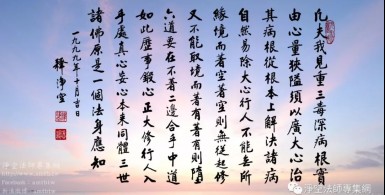 凡夫我見重三毒深病根實
由心量狹隘須以廣大心治
其病根從根本上解決諸病
自然易除大心行人不能無所
緣境而著空著空則無從起修
又不能取境而著有著有則墮
六道要在不著二邊合乎中道
如此歷事鍛心正大修行人入
手處真心妄心本來同體三世
諸佛原是一個法身應知
一九九九年 月吉日
釋淨空
淨空法師專集網